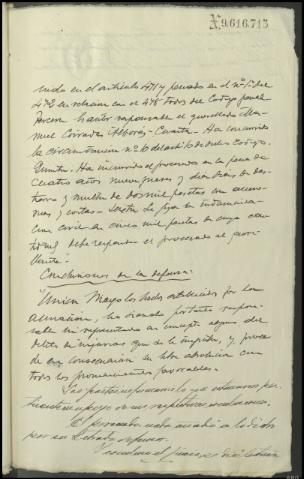 Nº 9.616.713
en el artículo 471 y penado en el nº 1º del
472 en relación con el 478 todos del Código penal
Tercera autor responsable el querellado Ma-
nuel Córdoba Cuarta - Ha concurrido
la circunstancia nº 6 del artº 10 de dicho Código.
Quinta. Ha incurrido el procesado en la pena de
cuatro años nueve meses y diez días de des-
tierro y multa de dos mil pesetas con acceso-
rias y costas - Sexta. Se fija la indemniza-
ción civil en cinco mil pesetas de cuya can-
tidad debe responder el procesado al quere-
llante.
Conclusiones de la defensa:
"Única. Niego los hechos establecidos por la
acusación, no siendo portanto respon-
sable mi representado en concepto alguno del
delito de injurias que se le imputa, y procede
en consecuencia su libre absolución con
todos los pronunciamientos favorables.
Las partes informaron lo que estimaron per-
tinente en apoyo de sus respectivas conclusiones.
El procesado nada añadió a lo dicho
por su Letrado defensor.